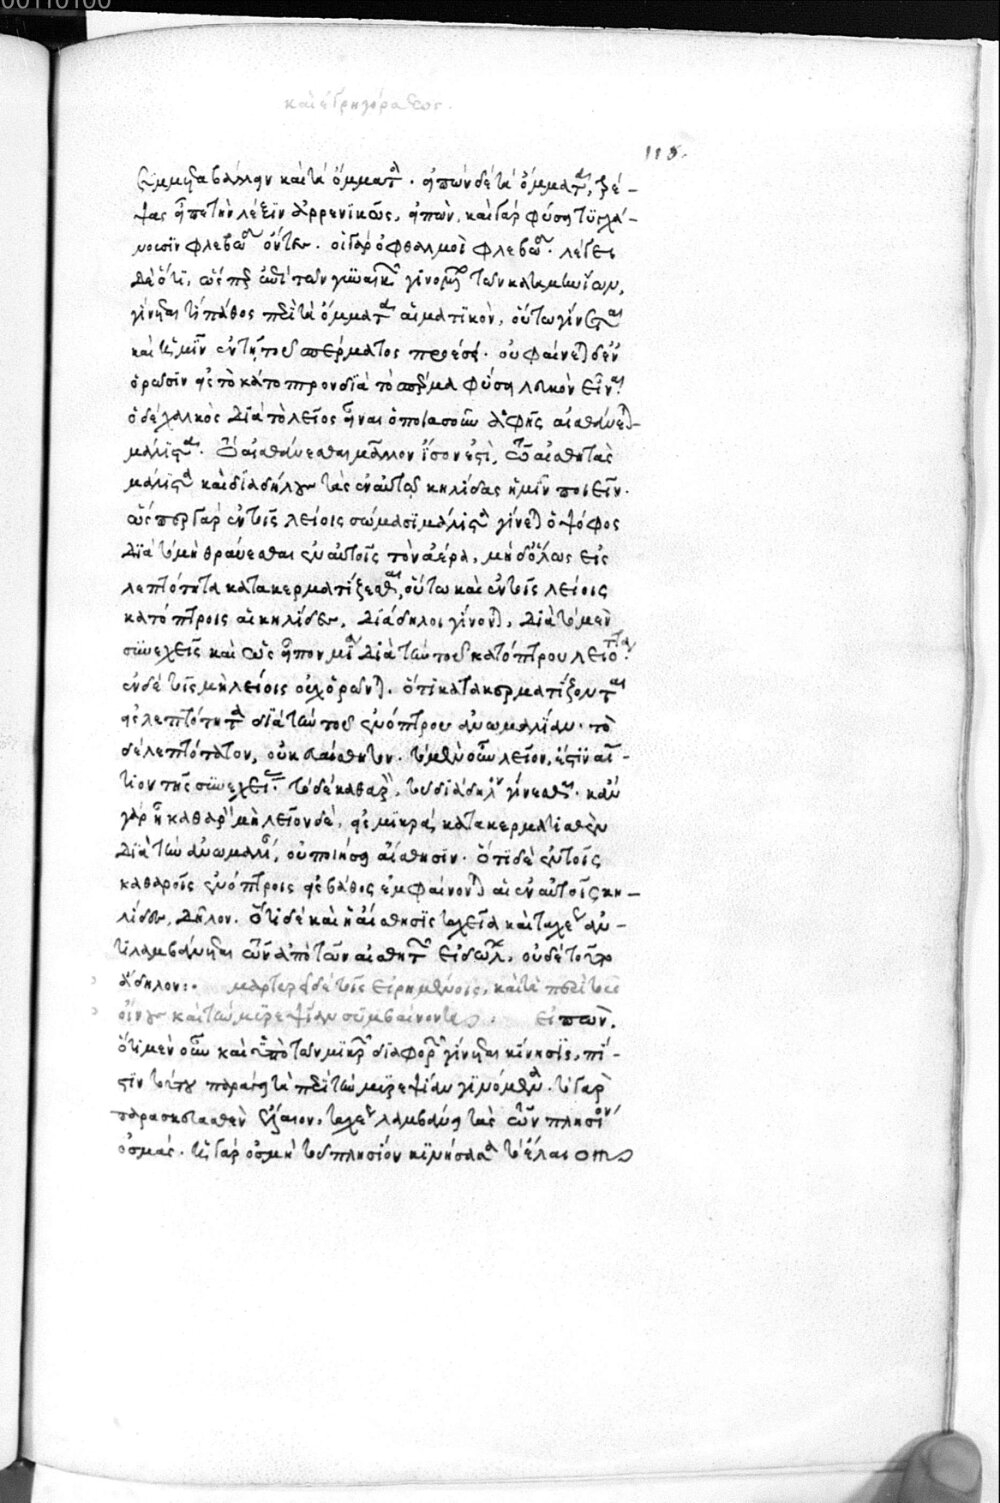 00110100
καὶ ἐγρηγόρσεως.
115.
συμμεταβάλλειν καὶ τὰ ὄμματα. εἰπὼν δὲ τὰ ὄμματα, τρέ-
ψας εἶπε τὴν λέξιν ἀρρενικῶς, εἰπὼν, καὶ γὰρ φύσει τυγχά-
νουσι φλεβώδεις ὄντες. οἱ γὰρ ὀφθαλμοὶ φλεβώδεις. λέγει
δὲ ὅτι, ὥσπερ ἐπὶ τῶν γυναικῶν γινομένων τῶν καταμηνίων,
γίνεται τὸ πάθος περὶ τὰ ὄμματα αἱματικὸν, οὕτω γίνεται
καὶ ἡμῖν ἐν τῇ τοῦ σπέρματος προέσει. οὐ φαίνεται δὲ
ὁρῶσιν εἰς τὸ κάτοπτρον διὰ τὸ σπέρμα φύσει λευκὸν εἶναι.
ὁ δὲ χαλκὸς διὰ τὸ λεῖος εἶναι ὁποιασοῦν ἁφῆς αἰσθάνεται
μάλιστα. τὸ αἰσθάνεσθαι μᾶλλον ἴσον ἐστὶ, τῷ αἰσθητὰς
μάλιστα καὶ διαδήλους τὰς ἐν αὐτῷ κηλίδας ἡμῖν ποιεῖν.
ὥσπερ γὰρ ἐν τοῖς λείοις σώμασι μάλιστα γίνεται ὁ ψόφος
διὰ τὸ μὴ θραύεσθαι ἐν αὐτοῖς τὸν ἀέρα, μηδ' ὅλως εἰς
λεπτότητα κατακερματίζεσθαι, οὕτω καὶ ἐν τοῖς λείοις
κατόπτροις αἱ κηλίδες, διάδηλοι γίνονται, διὰ τὸ μὲν
συνεχεῖς καὶ ὡς εἰπεῖν μίαν διὰ τὴν τοῦ κατόπτρου λειότητα.
ἐν δὲ τοῖς μὴ λείοις οὐχ ὁρῶνται. ὅτι κατακερματίζονται
εἰς λεπτότητα διὰ τὴν τοῦ ἐνόπτρου ἀνωμαλίαν. τὸ
δὲ λεπτότατον, οὐκ αἰσθητόν. τὸ μὲν οὖν λεῖον, ἐστὶν αἴ-
τιον τῆς συνεχείας. τὸ δὲ καθαρὸν, τοῦ διάδηλον γίνεσθαι. κἂν
γὰρ ᾖ καθαρὸν μὴ λεῖον δὲ, εἰς μικρὰ κατακερματισθὲν
διὰ τὴν ἀνωμαλίαν, οὐ ποιήσει αἴσθησιν. ὅτι δὲ ἐν τοῖς
καθαροῖς ἐνόπτροις εἰς βάθος ἐμφαίνονται αἱ ἐν αὐτοῖς κη-
λίδες, δῆλον. ὅτι δὲ καὶ ἡ αἴσθησις ταχεῖα καὶ ταχέως ἀν-
τιλαμβάνεται τῶν ἀπὸ τῶν αἰσθητῶν εἰδώλων, οὐδὲ τοῦτο
ἄδηλον:. μαρτυρεῖ δὲ τοῖς εἰρημένοις, καὶ τὰ περὶ τοὺς
οἴνους καὶ τὴν μυρεψίαν συμβαίνοντα. εἰπὼν.
ὅτι μὲν οὖν καὶ ὑπὸ τῶν μικρῶν διαφορῶν γίνεται κίνησις, πί-
στιν τούτου παράγει τὰ περὶ τὴν μυρεψίαν γινόμενα. τὸ γὰρ
παρασκευασθὲν ἔλαιον, ταχέως λαμβάνει τὰς τῶν πλησίον
ὀσμάς. ἡ γὰρ ὀσμὴ τοῦ πλησίον κινήσασα τὸ ἔλαιον